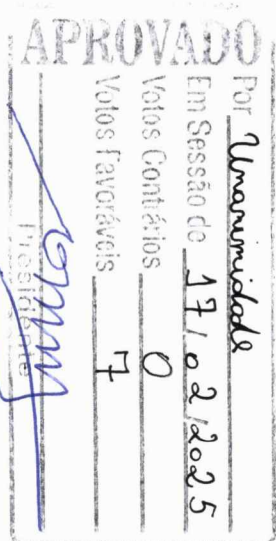 APROVADO
Por Unanimidade
Em Sessão de 17/02/2025
Votos Contrários 0
Votos Favoráveis 7
Presidente